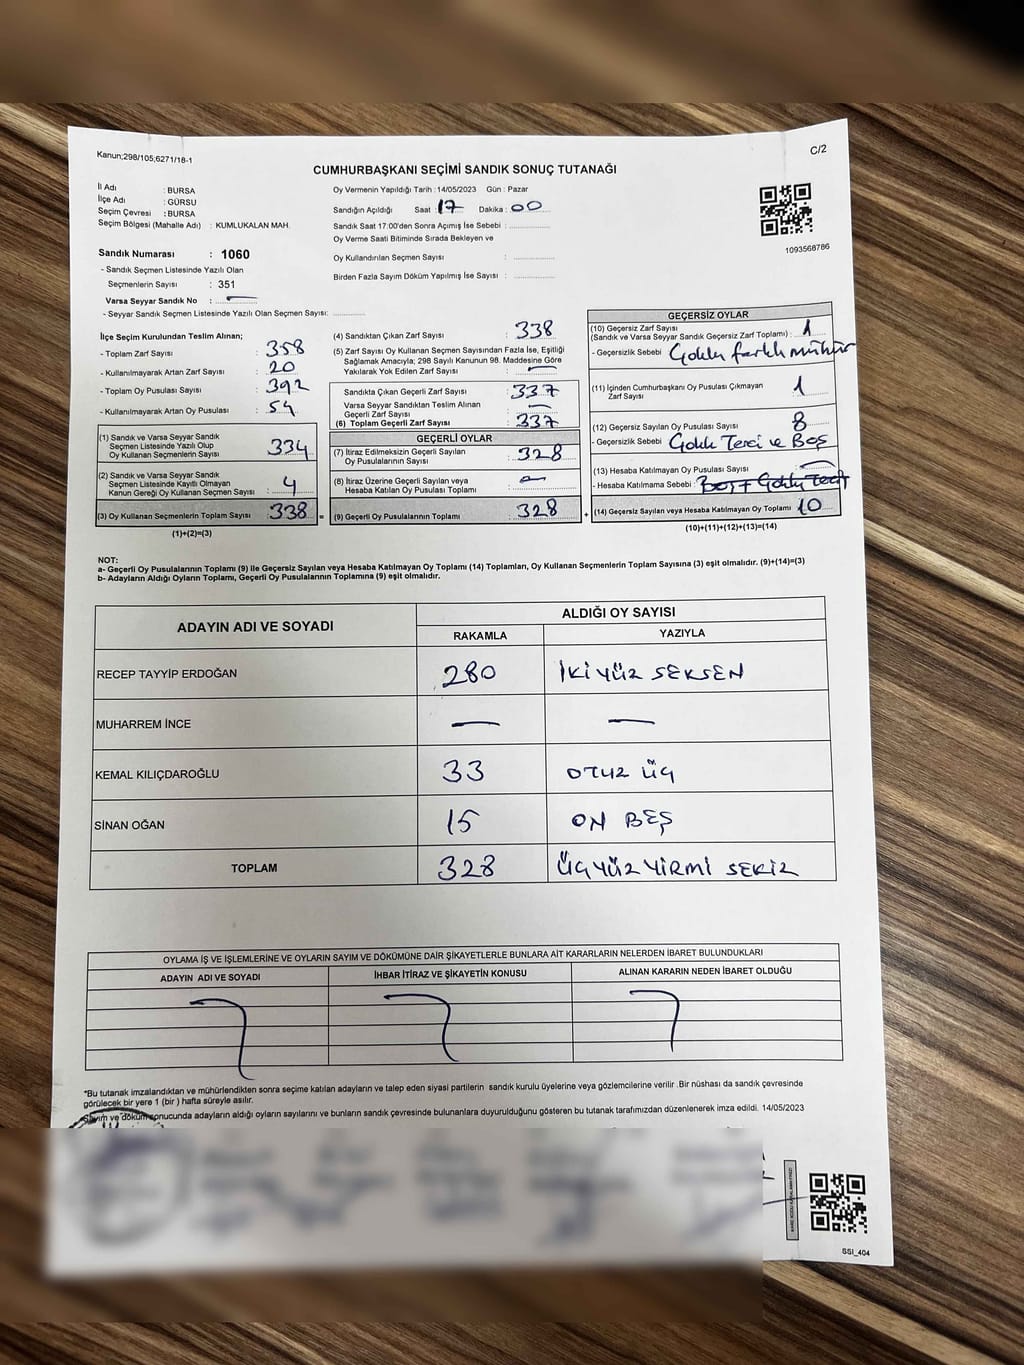 Kanun;298/105;6271/18-1
C/2
CUMHURBAŞKANI SEÇİMİ SANDIK SONUÇ TUTANAĞI
İl Adı : BURSA
İlçe Adı : GÜRSU
Seçim Çevresi : BURSA
Seçim Bölgesi (Mahalle Adı) : KUMLUKALAN MAH.
Oy Vermenin Yapıldığı Tarih : 14/05/2023 Gün : Pazar
Sandığın Açıldığı Saat : 17 Dakika : 00
Sandık Saat 17:00'den Sonra Açımış İse Sebebi :
Oy Verme Saati Bitiminde Sırada Bekleyen ve
Oy Kullandırılan Seçmen Sayısı :
Birden Fazla Sayım Döküm Yapılmış İse Sayısı :
1093568786
Sandık Numarası : 1060
- Sandık Seçmen Listesinde Yazılı Olan
Seçmenlerin Sayısı : 351
Varsa Seyyar Sandık No : —
- Seyyar Sandık Seçmen Listesinde Yazılı Olan Seçmen Sayısı:
İlçe Seçim Kurulundan Teslim Alınan;
- Toplam Zarf Sayısı : 358
- Kullanılmayarak Artan Zarf Sayısı : 20
- Toplam Oy Pusulası Sayısı : 392
- Kullanılmayarak Artan Oy Pusulası : 54
(1) Sandık ve Varsa Seyyar Sandık
Seçmen Listesinde Yazılı Olup
Oy Kullanan Seçmenlerin Sayısı : 334
(2) Sandık ve Varsa Seyyar Sandık
Seçmen Listesinde Kayıtlı Olmayan
Kanun Gereği Oy Kullanan Seçmen Sayısı : 4
(3) Oy Kullanan Seçmenlerin Toplam Sayısı : 338 =
(1)+(2)=(3)
(4) Sandıktan Çıkan Zarf Sayısı : 338
(5) Zarf Sayısı Oy Kullanan Seçmen Sayısından Fazla İse, Eşitliği
Sağlamak Amacıyla; 298 Sayılı Kanunun 98. Maddesine Göre
Yakılarak Yok Edilen Zarf Sayısı : —
Sandıkta Çıkan Geçerli Zarf Sayısı : 337
Varsa Seyyar Sandıktan Teslim Alınan
Geçerli Zarf Sayısı : —
(6) Toplam Geçerli Zarf Sayısı : 337
GEÇERLİ OYLAR
(7) İtiraz Edilmeksizin Geçerli Sayılan
Oy Pusulalarının Sayısı : 328
(8) İtiraz Üzerine Geçerli Sayılan veya
Hesaba Katılan Oy Pusulası Toplamı : —
(9) Geçerli Oy Pusulalarının Toplamı : 328 +
GEÇERSİZ OYLAR
(10) Geçersiz Zarf Sayısı
(Sandık ve Varsa Seyyar Sandık Geçersiz Zarf Toplamı) : 1
- Geçersizlik Sebebi : Çoklu farklı mühür
(11) İçinden Cumhurbaşkanı Oy Pusulası Çıkmayan
Zarf Sayısı : 1
(12) Geçersiz Sayılan Oy Pusulası Sayısı : 8
- Geçersizlik Sebebi : Çoklu Terci ve Boş
(13) Hesaba Katılmayan Oy Pusulası Sayısı : —
- Hesaba Katılmama Sebebi :
(14) Geçersiz Sayılan veya Hesaba Katılmayan Oy Toplamı : 10
(10)+(11)+(12)+(13)=(14)
NOT:
a- Geçerli Oy Pusulalarının Toplamı (9) ile Geçersiz Sayılan veya Hesaba Katılmayan Oy Toplamı (14) Toplamları, Oy Kullanan Seçmenlerin Toplam Sayısına (3) eşit olmalıdır. (9)+(14)=(3)
b- Adayların Aldığı Oyların Toplamı, Geçerli Oy Pusulalarının Toplamına (9) eşit olmalıdır.
ADAYIN ADI VE SOYADI ALDIĞI OY SAYISI
RAKAMLA YAZIYLA
RECEP TAYYİP ERDOĞAN 280 İKİ YÜZ SEKSEN
MUHARREM İNCE — —
KEMAL KILIÇDAROĞLU 33 OTUZ ÜÇ
SİNAN OĞAN 15 ON BEŞ
TOPLAM 328 ÜÇ YÜZ YİRMİ SEKİZ
OYLAMA İŞ VE İŞLEMLERİNE VE OYLARIN SAYIM VE DÖKÜMÜNE DAİR ŞİKAYETLERLE BUNLARA AİT KARARLARIN NELERDEN İBARET BULUNDUKLARI
ADAYIN ADI VE SOYADI İHBAR İTİRAZ VE ŞİKAYETİN KONUSU ALINAN KARARIN NEDEN İBARET OLDUĞU
*Bu tutanak imzalandıktan ve mühürlendikten sonra seçime katılan adayların ve talep eden siyasi partilerin sandık kurulu üyelerine veya gözlemcilerine verilir .Bir nüshası da sandık çevresinde
görülecek bir yere 1 (bir ) hafta süreyle asılır.
Sayım ve döküm sonucunda adayların aldığı oyların sayılarını ve bunların sandık çevresinde bulunanlara duyurulduğunu gösteren bu tutanak tarafımızdan düzenlenerek imza edildi. 14/05/2023
SSI_404